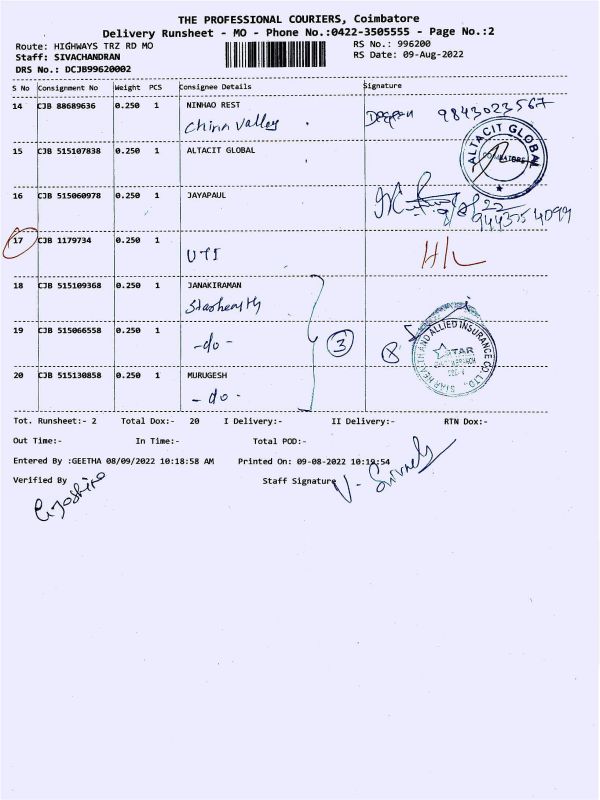 THE PROFESSIONAL COURIERS, Coimbatore
Delivery Runsheet - MO - Phone No.:0422-3505555 - Page No.:2
Route: HIGHWAYS TRZ RD MO RS No.: 996200
Staff: SIVACHANDRAN RS Date: 09-Aug-2022
DRS No.: DCJB99620002
S No Consignment No Weight PCS Consignee Details Signature
14 CJB 88689636 0.250 1 NINHAO REST 9843023567
China Valley
ALTACIT GLOBAL
COIMBATORE
15 CJB 515107838 0.250 1 ALTACIT GLOBAL
16 CJB 515060978 0.250 1 JAYAPAUL
9443754099
17 CJB 1179734 0.250 1
UTI H/L
18 CJB 515109368 0.250 1 JANAKIRAMAN
Starhealth
19 CJB 515066558 0.250 1
-do- 3
STAR HEALTH AND ALLIED INSURANCE CO. LTD.
STAR
20 CJB 515130858 0.250 1 MURUGESH
-do-
Tot. Runsheet:- 2 Total Dox:- 20 I Delivery:- II Delivery:- RTN Dox:-
Out Time:- In Time:- Total POD:-
Entered By :GEETHA 08/09/2022 10:18:58 AM Printed On: 09-08-2022 10:19:54
Verified By Staff Signature